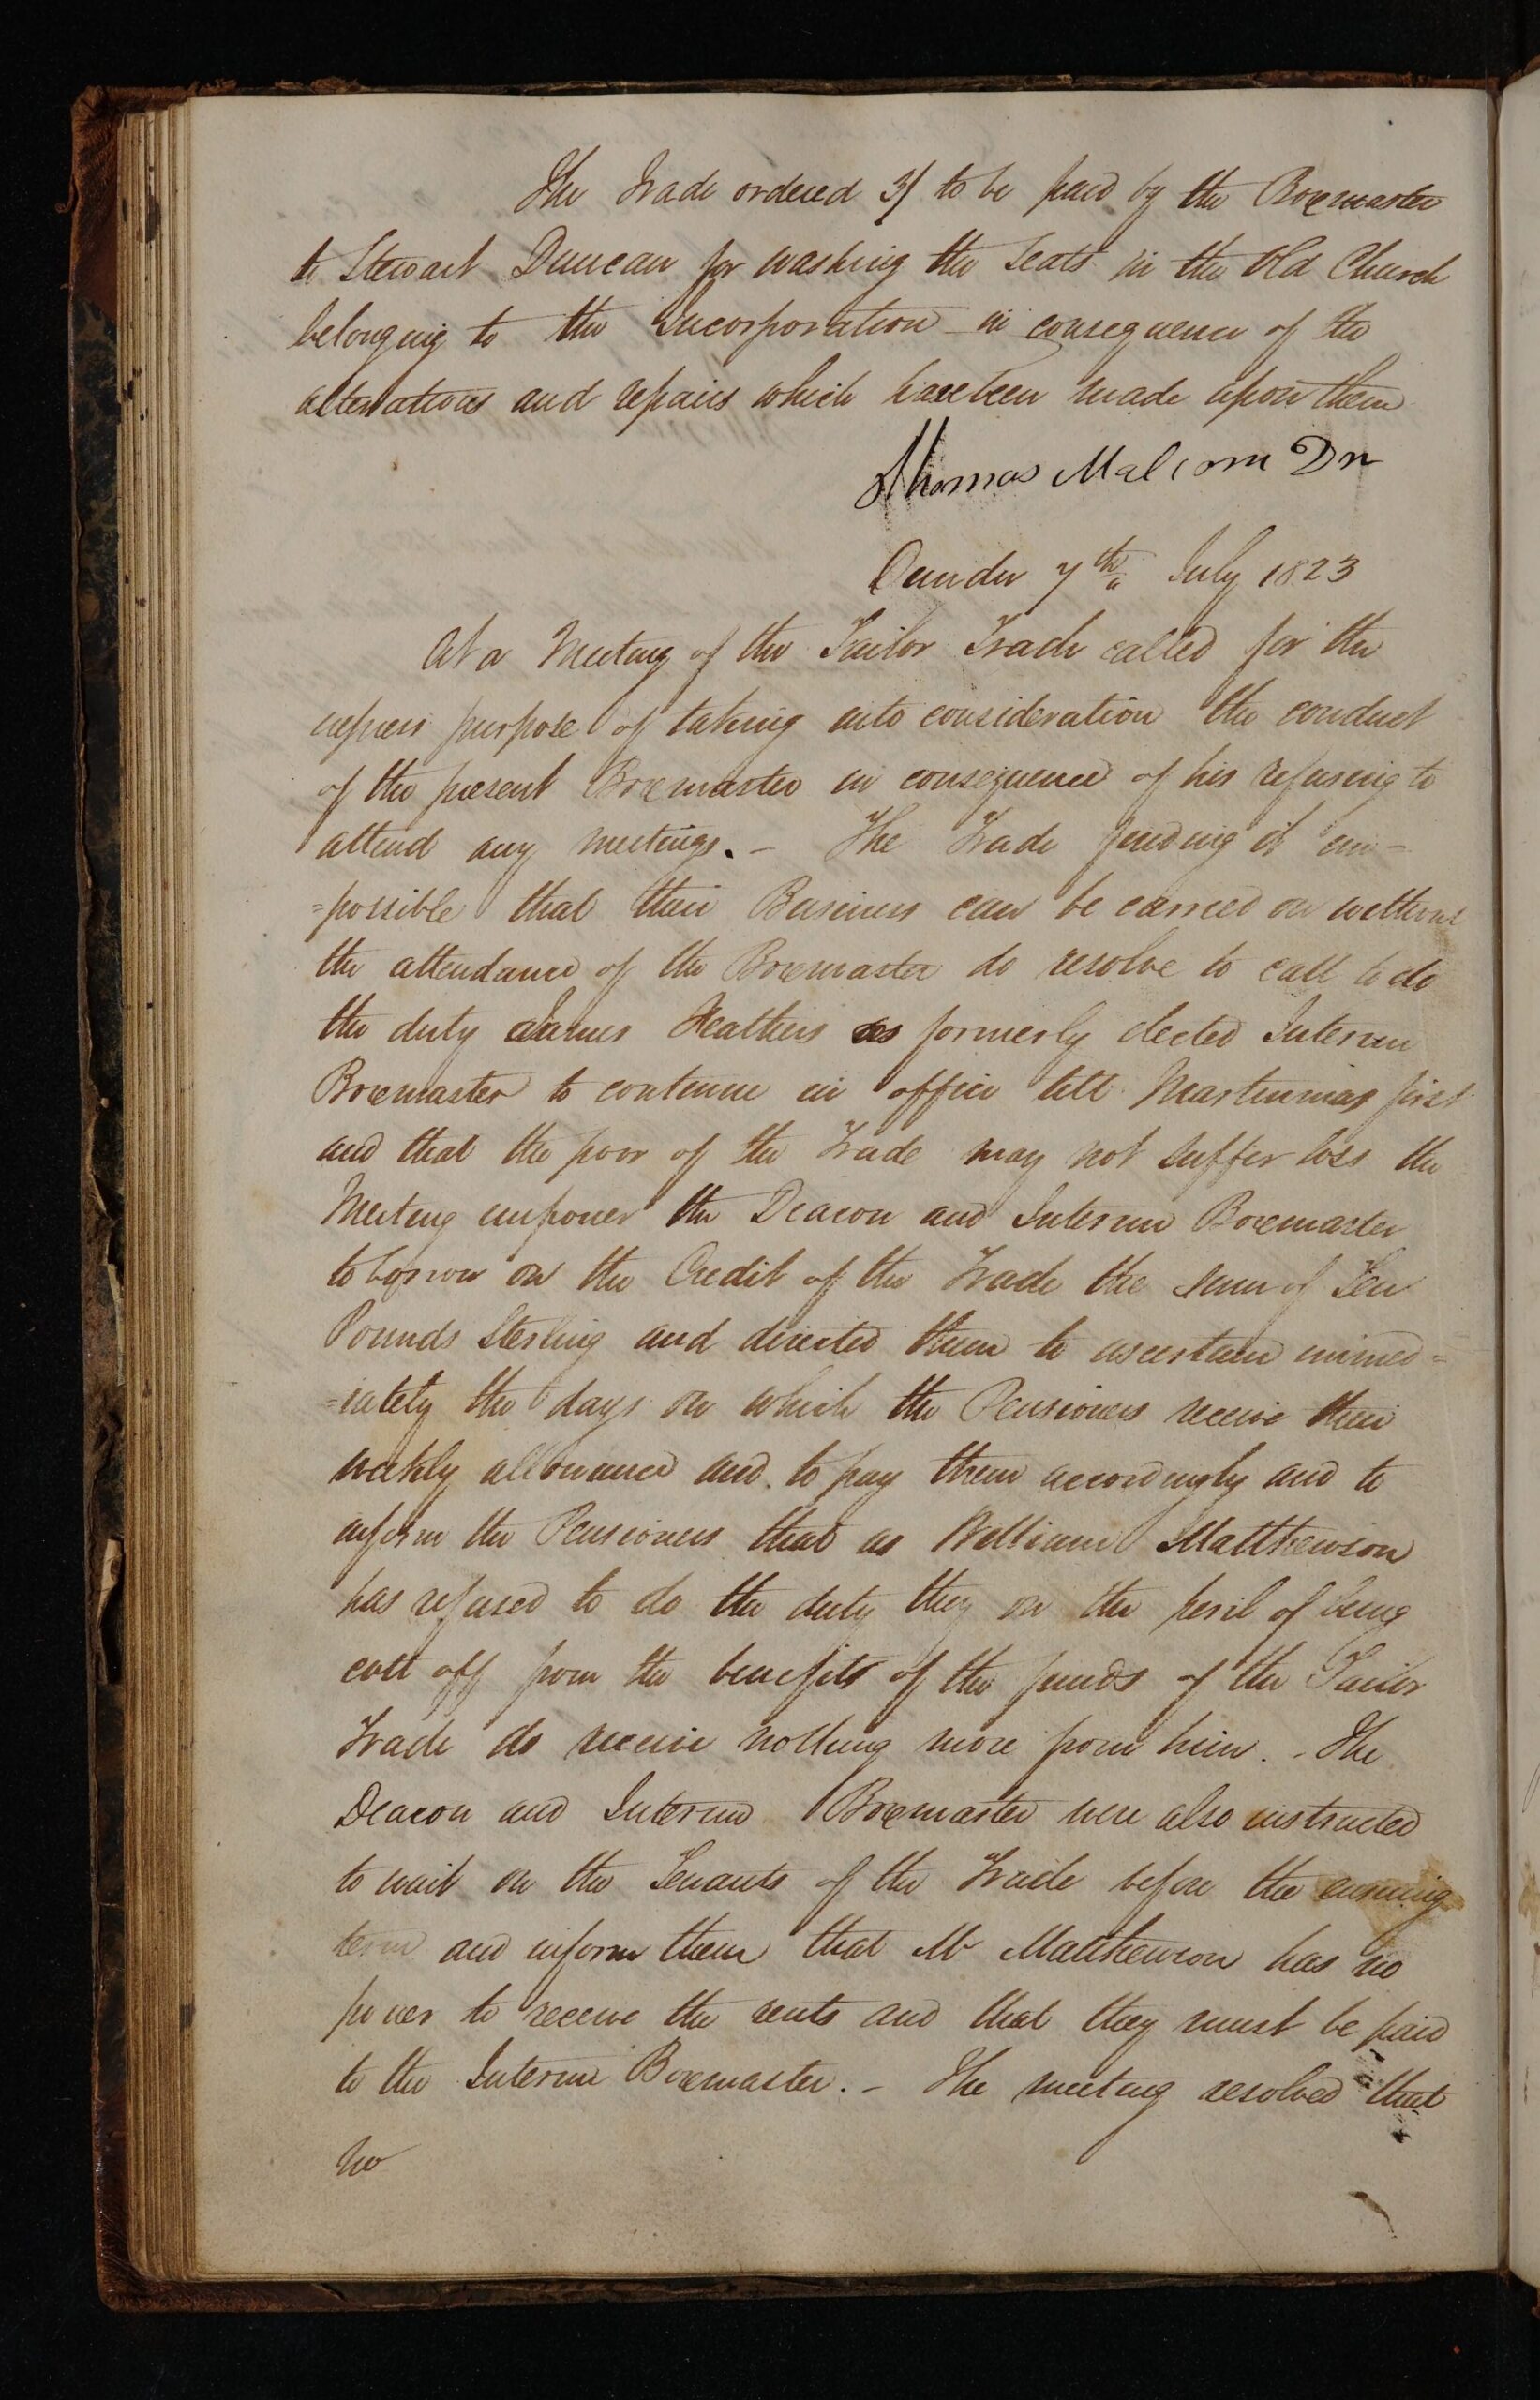 The Trade ordered 3/ to be paid by the Boxmaster
to Stewart Duncan for washing the Seats in the Old Church
belonging to the Incorporation in consequence of the
alterations and repairs which have been made upon them
Thomas Malcom Dn
Dundee 7th July 1823
At a Meeting of the Tailor Trade called for the
express purpose of taking into consideration the conduct
of the present Boxmaster in consequence of his refusing to
attend any meetings. - The Trade finding it im-
=possible that their Business can be carried on without
the attendance of the Boxmaster do resolve to call to do
the duty James Heathers as formerly elected Interim
Boxmaster to continue in office till Martinmas first
and that the poor of the Trade may not suffer loss the
Meeting empower the Deacon and Interim Boxmaster
to borrow on the Credit of the Trade the sum of Ten
Pounds Sterling and directed them to ascertain immed=
=iately the days on which the Pensioners receive their
weekly allowance and to pay them accordingly and to
inform the Pensioners that as William Matthewson
has refused to do the duty they on the peril of being
cutt off from the benefits of the funds of the Tailor
Trade do receive nothing more from him. - The
Deacon and Interim Boxmaster were also instructed
to wait on the Tenants of the Trade before the ensuing
term and inform them that Mr Matthewson has no
power to receive the rents and that they must be paid
to the Interim Boxmaster. - The meeting resolved that
no